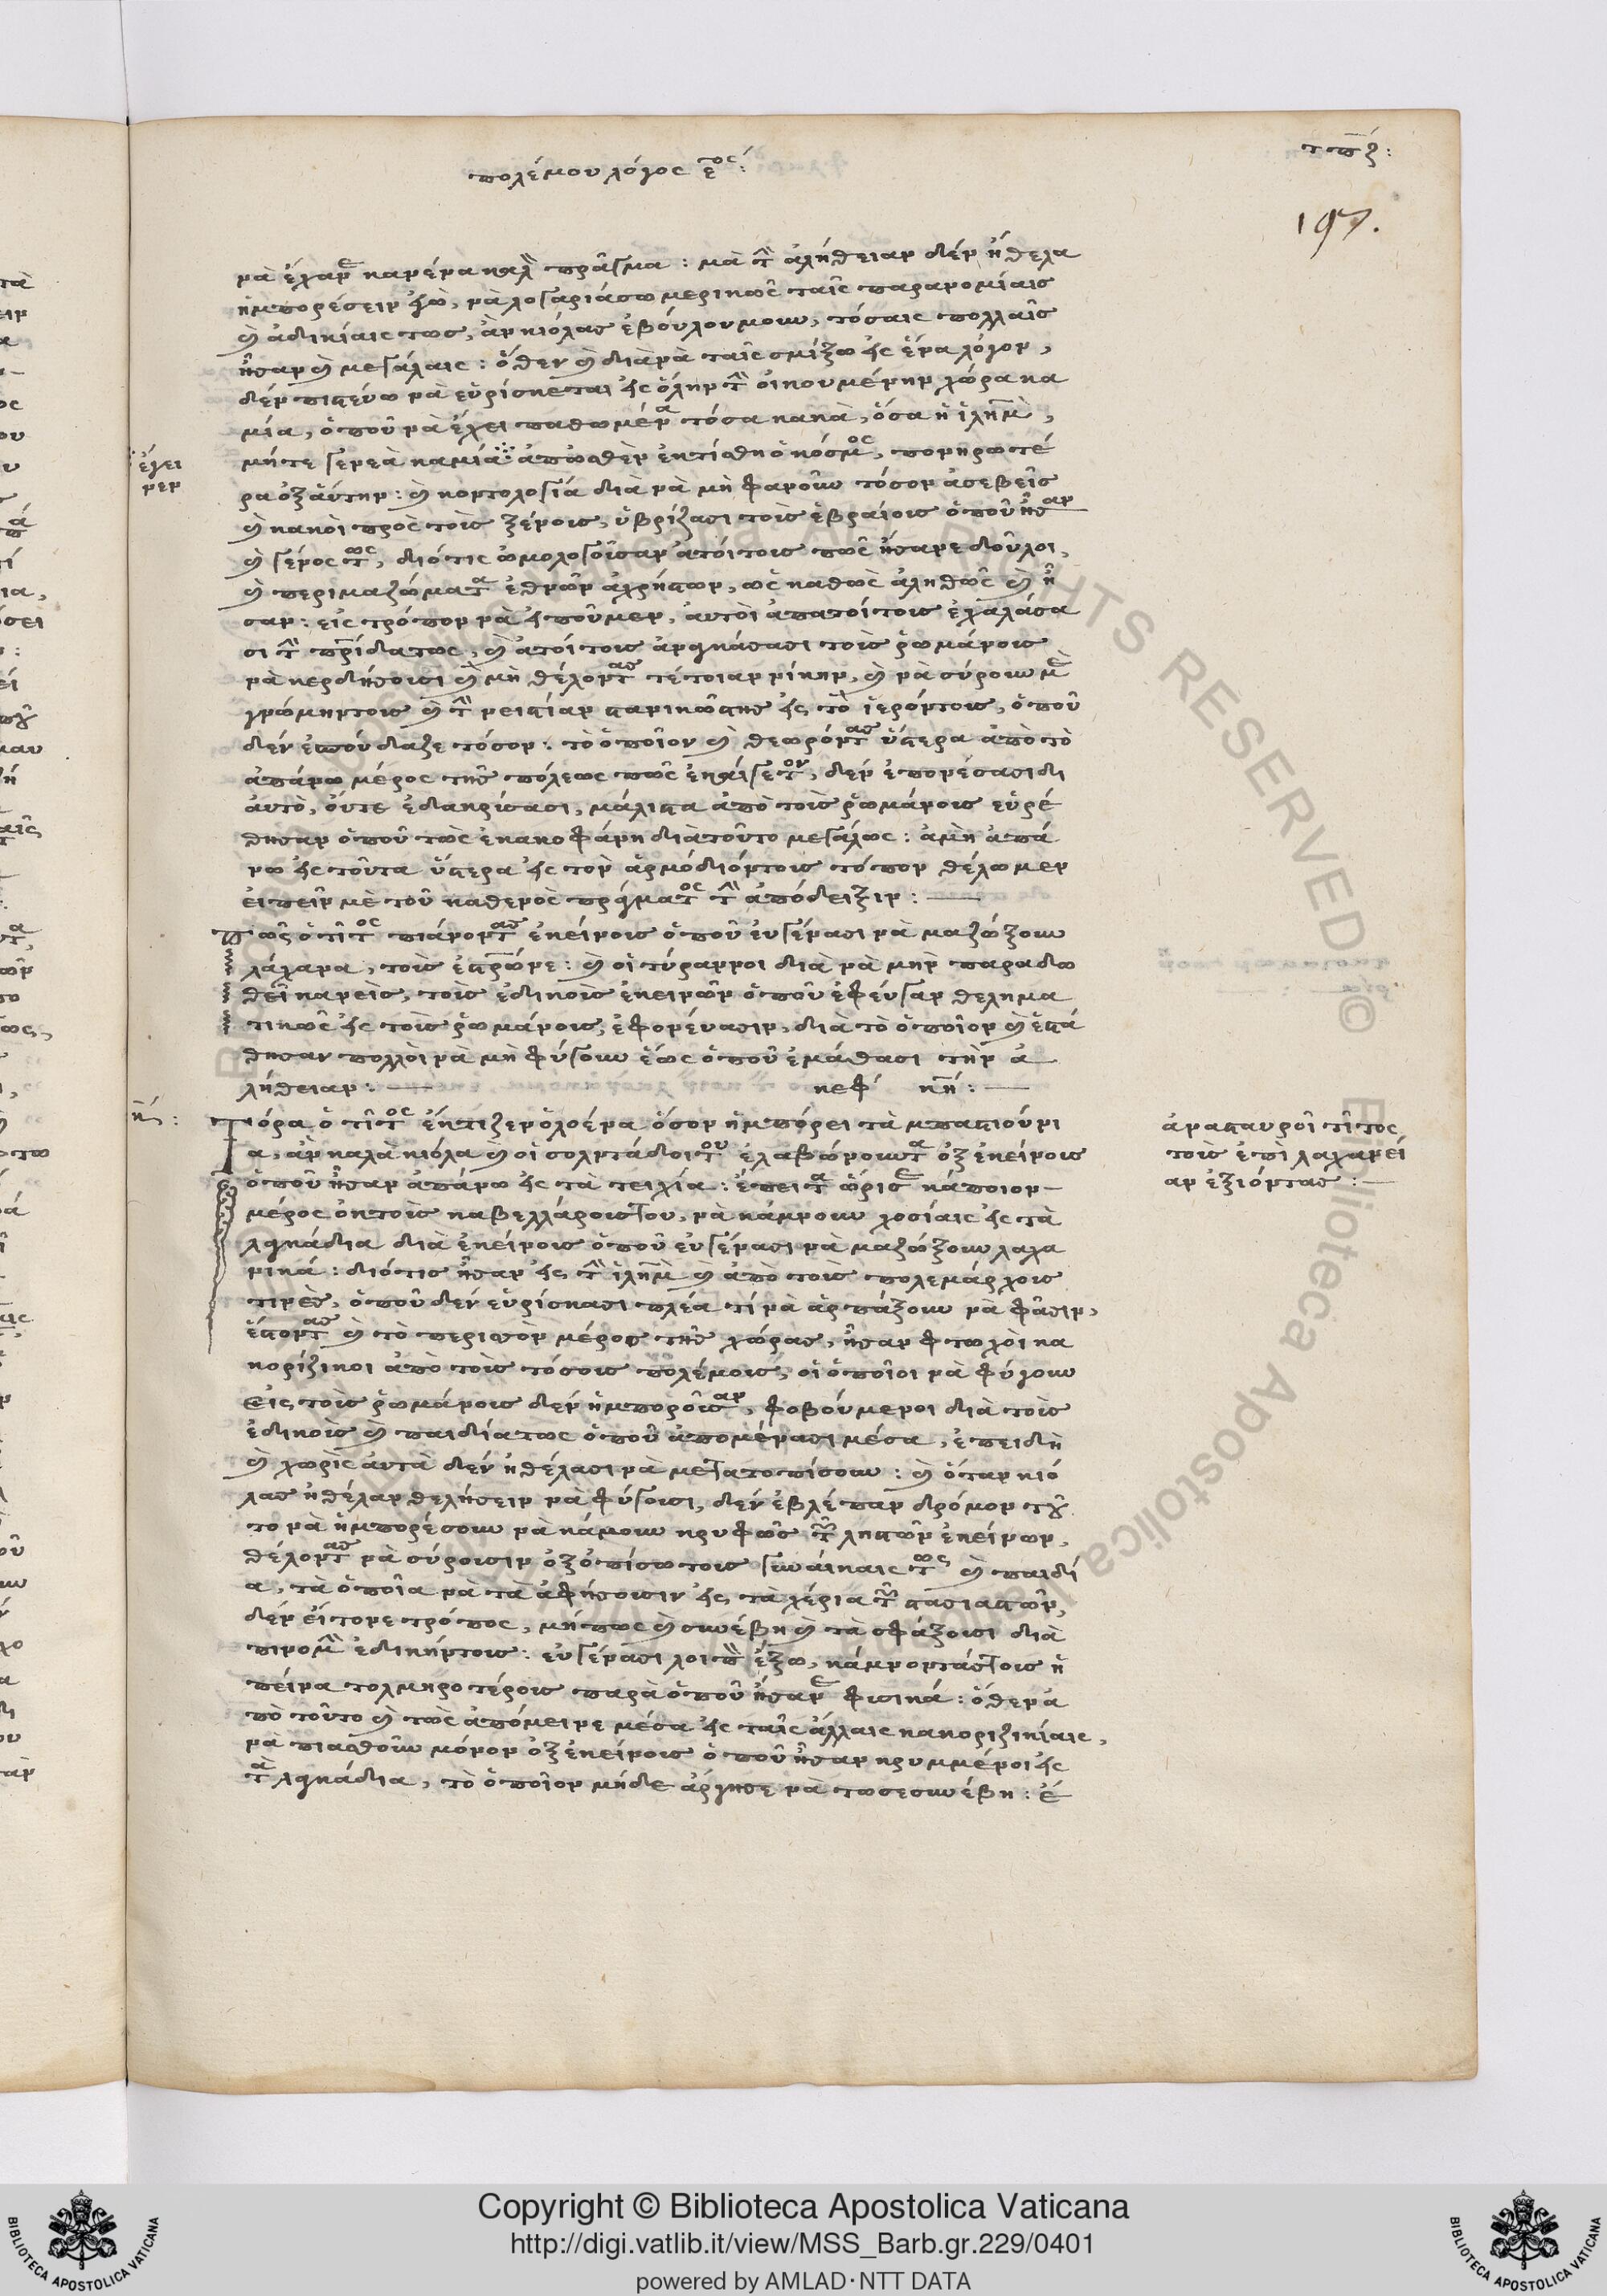 πολέμου λόγος ε^ος:
τπζ:
197.
νὰ ἔχαν κανένα καλὸ πρᾶγμα: μὰ τὴν ἀλήθειαν δὲν ἤθελα
ἠμπορέσειν ἐγὼ, νὰ λογαριάσω μερικῶς ταῖς παρανομίαις
καὶ ἀδικίαις τως, ἂν κιόλας ἐβούλουμουν, τόσαις πολλαῖς
ἦσαν καὶ μεγάλαις: ὅθεν καὶ διὰ νὰ ταῖς σμίξω εἰς ἕνα λόγον,
δὲν πιστεύω νὰ εὑρίσκεται εἰς ὅλην τὴν οἰκουμένην χώρα κα
μία, ὁποῦ νὰ ἔχει παθωμένα τόσα κακὰ, ὅσα ἡ ἱλημ,
μήτε γενεὰ καμία ἀπῶσθεν ἐκτίσθη ὁ κόσμος, πονηρωτέ
ἔγει
νεν
ρα ὀξ αὐτὴν: καὶ κοντολογία διὰ νὰ μὴ φανοῦν τόσον ἀσεβεῖς
καὶ κακοὶ πρὸς τοὶς ξένοις, ὑβρίζασι τοὶς ἑβραίοις ὁποῦ ἦσαν
καὶ γένος τως, διότις ὡμολογοῦσαν ἀτοίτοις πῶς ἤσανε δοῦλοι,
καὶ περιμαζώματα ἐθνῶν ἀχρήστων, ὡς καθὼς ἀληθῶς καὶ ἦ
σαν: εἰς τρόπον νὰ εἰποῦμεν, αὐτοὶ ἀπατοίτοις ἐχαλάσα
σι τὴν πρίδατως, καὶ ἀτοίτοις ἀνγκάσασι τοὶς ῥωμάνοις
νὰ κερδήσοισι καὶ μὴ θέλοντας τέτοιαν νίκην, καὶ νὰ σύρουν μὲ
γνώμηντοις καὶ τὴν φωτίαν στανικῶστης εἰς τὸ ἱερόντοις, ὁποῦ
δὲν ἐσπούδαζε τόσον: τὸ ὁποῖον καὶ θεωρόντας ὕστερα ἀπὸ τὸ
ἀπάνω μέρος τῆς πόλεως πῶς ἐκαίγετον, δὲν ἐπονέσασι δι
αὐτὸ, οὔτε ἐδακρύσασι, μάλιστα ἀπὸ τοὶς ῥωμάνοις εὑρέ
θησαν ὁποῦ τῶς ἐκακοφάνη διὰ τοῦτο μεγάλως: ἀμὴ ἀπά
νω εἰς τοῦτα ὕστερα εἰς τὸν ἁρμόδιόντοις τόπον θέλωμεν
εἰπεῖν μὲ τοῦ καθενὸς πράγματος τὴν ἀπόδειξιν:
πῶς ὁ τίτος πιάνοντας ἐκείνοις ὁποῦ εὐγένασι νὰ μαζώξουν
λάχανα, τοὶς ἐσταύρωνε: καὶ οἱ τύραννοι διὰ νὰ μὴν παραδω
θεῖ κανεὶς, τοὶς ἐδικοὶς ἐκεινῶν ὁποῦ ἐφεύγαν θελημα
τικῶς εἰς τοὶς ῥωμάνοις, ἐφονεύασιν, διὰ τὸ ὁποῖον καὶ ἐστά
θησαν πολλοὶ νὰ μὴ φύγουν ἕως ὁποῦ ἐμάθασι τὴν ἀ
λήθειαν: κεφ κη:
κη:
Τώρα ὁ τίτος ἔκτιζεν ὁλοένα ὅσον ἠμπόρει τὰ μπαστιούνι
α, ἂν καλὰ κιόλα καὶ οἱ σολντάδοιτου ἐλαβώνουντα ὀξ ἐκείνοις
ὁποῦ ἦσαν ἀπάνω εἰς τὰ τειχία: ἔπειτα ὥρισε κάποιον
μέρος ὀκ τοὶς καβελλάροιστου, νὰ κάμνουν χοσίαις εἰς τὰ
λαγκάδια διὰ ἐκείνοις ὁποῦ εὐγένασι νὰ μαζώξουν λαχα
νικά: διότις ἦσαν εἰς τὴν ἱλημ καὶ ἀπὸ τοὶς πολεμάρχοις
τινὲς, ὁποῦ δὲν εὑρίσκασι πλέα τί νὰ ἁρπάξουν νὰ φᾶσιν,
ἔστοντας καὶ τὸ περισσὸν μέρος τῆς χώρας, ἦσαν φτωχοὶ κα
κορίζικοι ἀπὸ τοὶς τόσοις πολέμοις, οἱ ὁποῖοι νὰ φύγουν
εἰς τοὶς ῥωμάνοις δὲν ἠμποροῦσαν, φοβούμενοι διὰ τοὶς
ἐδικοὶς καὶ παιδία τως ὁποῦ ἀπομένασι μέσα, ἐπειδὴ
καὶ χωρὶς αὐτὰ δὲν ἠθέλασι νὰ μετατοπίσουν: καὶ ὅταν κιό
λας ἠθέλαν θελήσειν νὰ φύγοισι, δὲν ἐβλέπαν δρόμον τοῦ
το νὰ ἠμπορέσουν νὰ κάμουν κρυφῶς τῶν ληστῶν ἐκείνων,
θέλοντας νὰ σύροισιν ὀξοπίσωτοις γυναίκαις τως καὶ παιδί
α, τὰ ὁποῖα νὰ τὰ ἀφήσοισιν εἰς τὰ χέρια τῶν στασιαστῶν,
δὲν εἶτονε τρόπος, μήπως καὶ συνέβη καὶ τὰ σφάξοισι διὰ
πινομὴν ἐδικήντοις: εὐγένασι λοιπὸν ἔξω, κάμνοντάςτοις ἡ
πείνα τολμηροτέροις παρὰ ὁποῦ ἦσανε φισικά: ὅθεν ἀ
πὸ τοῦτο καὶ τῶς ἀπόμεινε μέσα εἰς ταῖς ἄλλαις κακοριζικίαις,
νὰ πιασθοῦν μόνον ὀξ ἐκείνοις ὁποῦ ἦσαν κρυμμένοι εἰς
τὰ λαγκάδια, τὸ ὁποῖον μήδε ἄργησε νὰ τωσεσυνέβη: ἐ
ἀνασταυροῖ τίτος
τοὶς ἐπὶ λαχανεί
αν ἐξιόντας:
Copyright © Biblioteca Apostolica Vaticana
http://digi.vatlib.it/view/MSS_Barb.gr.229/0401
powered by AMLAD·NTT DATA